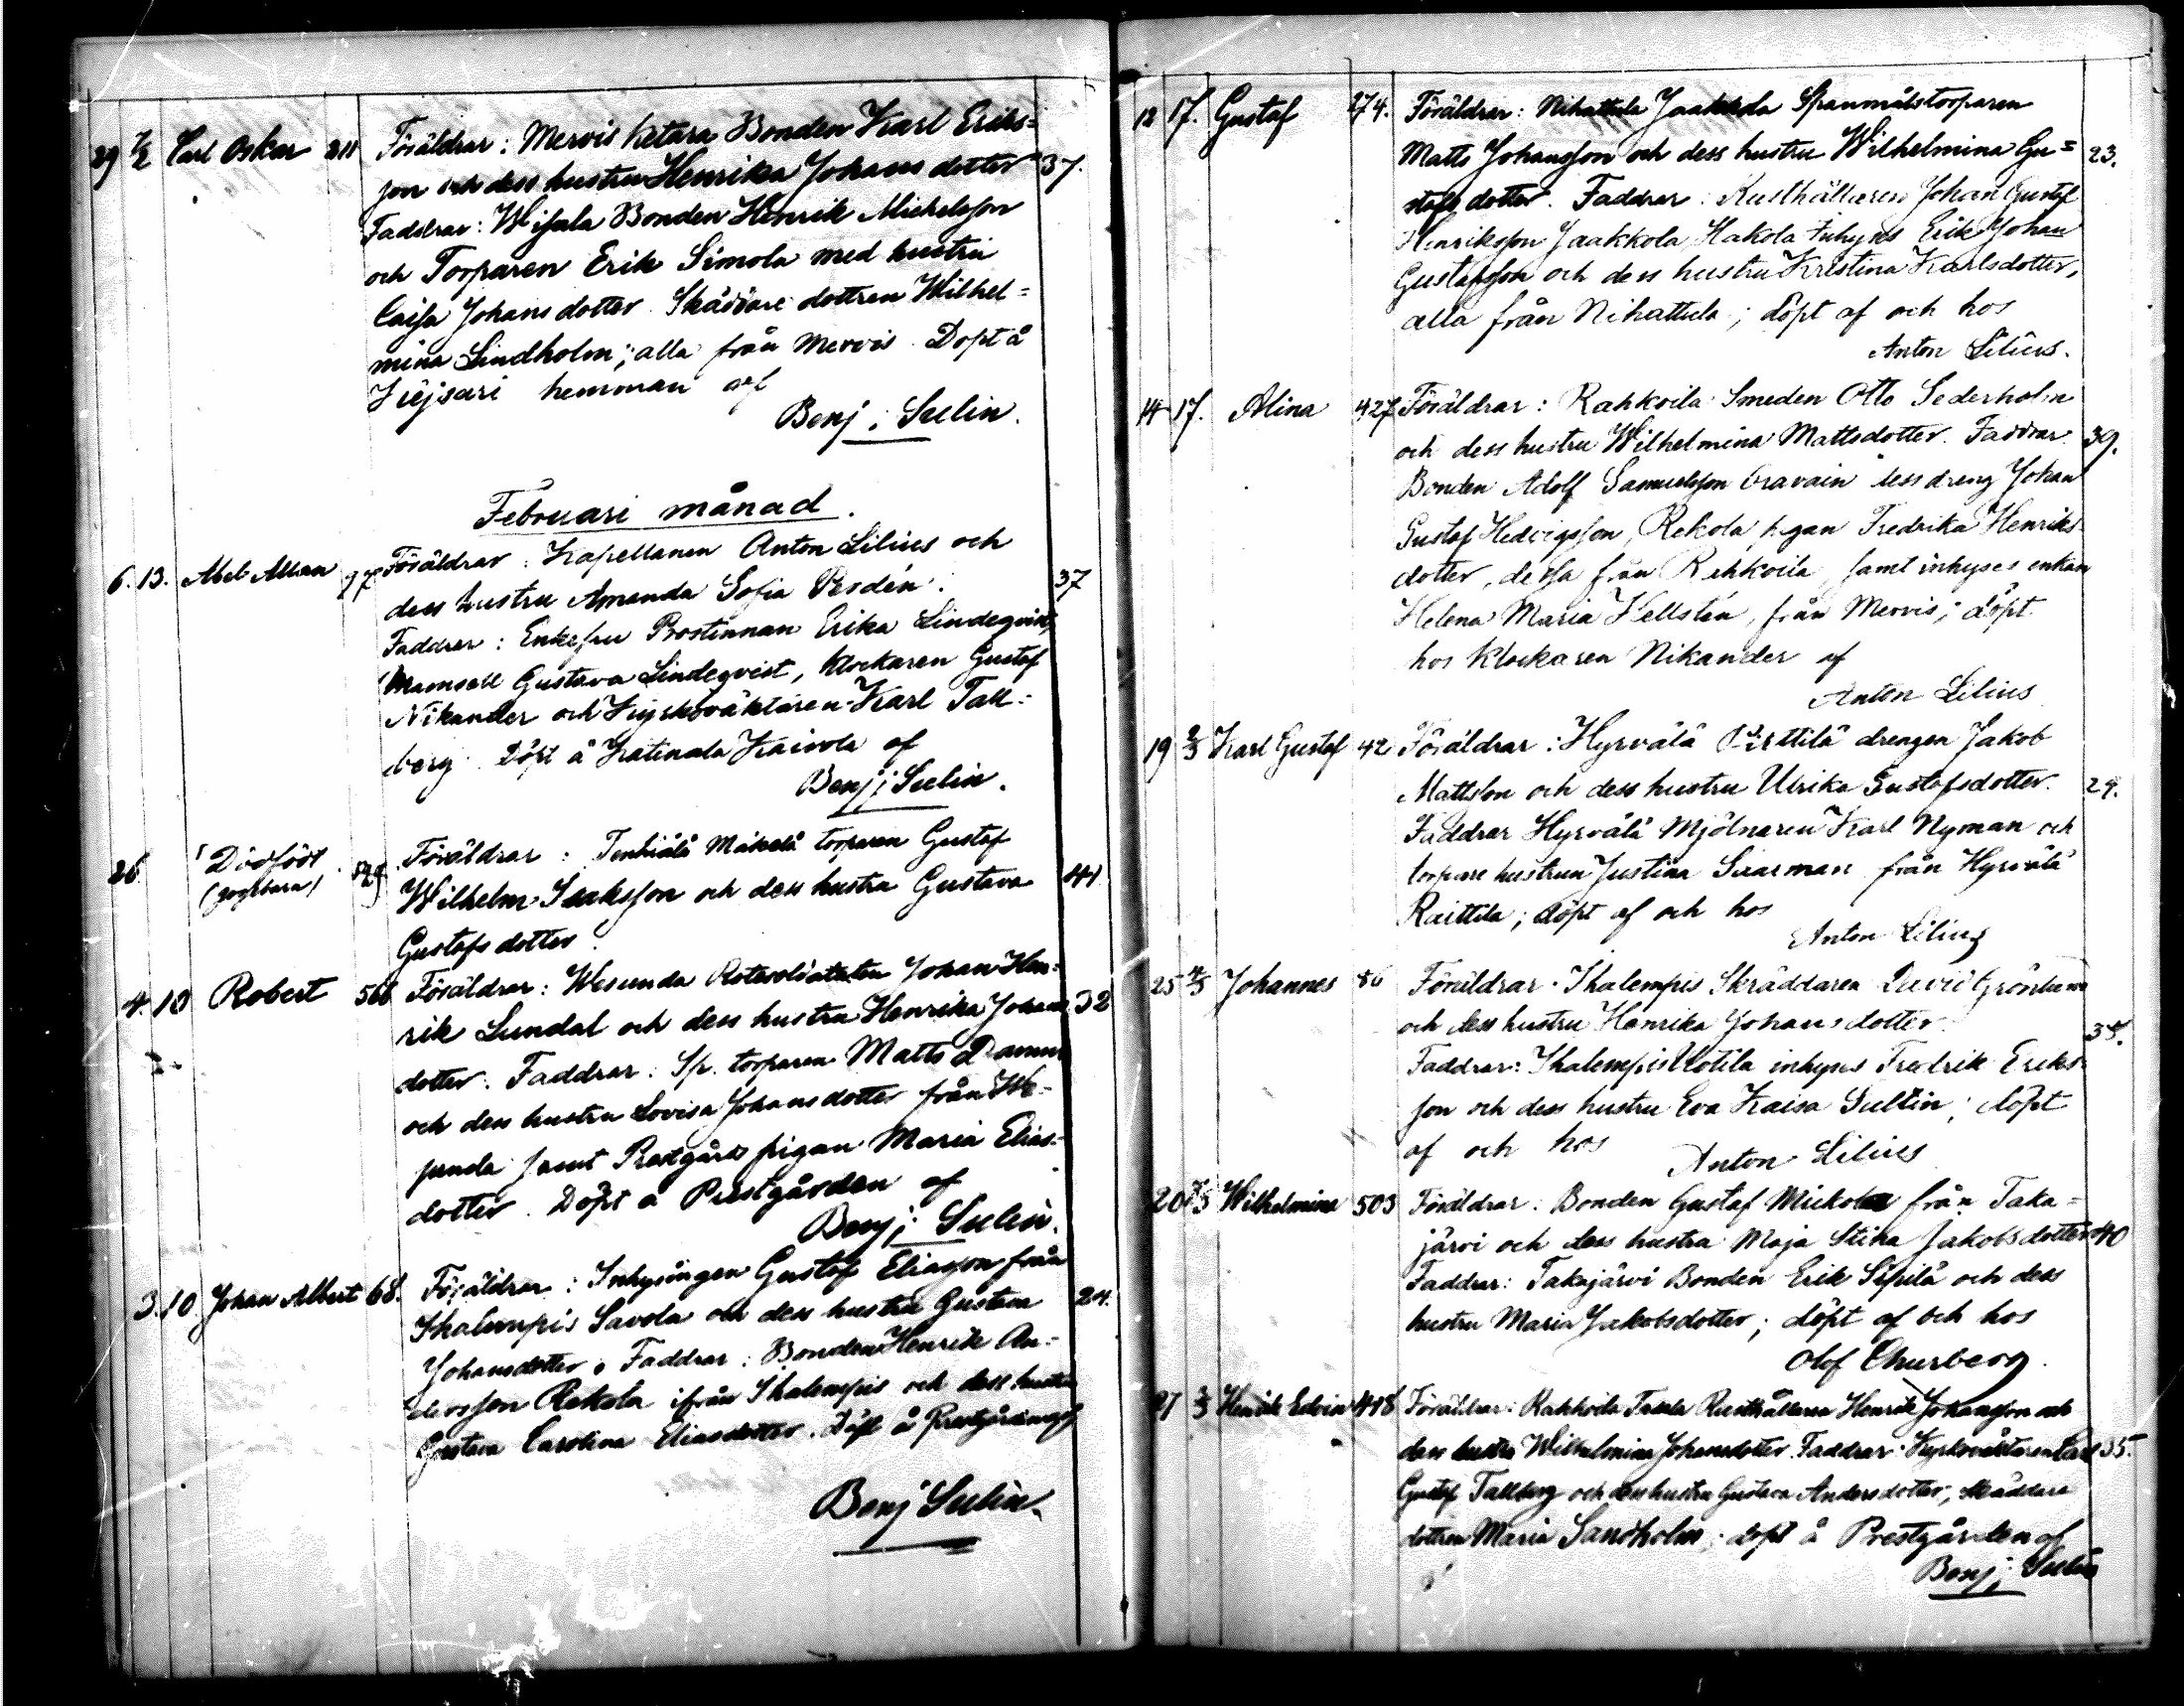 29 7/2 Carl Oskar 211 Föräldrar: Mervis Ketara Bonden Karl Eriks=
son och dess hustru Henrika Johansdotter 37.
Faddrar: Wisala Bonden Henrik Michelsson
och Torparen Erik Simola med hustru
Caisa Johansdotter. Skäddare dottren Wilhel=
mina Lindholm; alla från Mervis. Döpt å
hemman af
Benj; Seelin.
Februari månad.
6. 13. Abel Allan 97 Föräldrar: Kapellanen Anton Lilius och
dess hustru Amanda Sofia Pesdén. 37
Faddrar: Enkefru Prostinnan Erika Lindeqvist,
Mamsell Gustava Lindeqvist, Klockaren Gustaf
Nikander och Kyrkoväktaren Karl Tall=
berg. Döpt å Katinala Kaivola af
Benj; Seelin.
26 Dödfödt Föräldrar: Tenhiälä Mäkelä torparen Gustaf
Wilhelm Isaksson och dess hustru Gustava 44
Gustafsdotter.
4. 10 Robert 566 Föräldrar: Wesunda Rotesoldaten Johan Hen=
rik Lundal och dess hustru Henrika Johans 32
dotter. Faddrar: Sp. torparen Matts Damm
och dess hustru Lovisa Johansdotter från We=
sunda samt Prestgårds pigan Maria Elias=
dotter. Döpt å Prestgården af
Benj; Seelin.
3. 10 Johan Albert 68. Föräldrar: Inhysingen Gustaf Eliasson från
Ihalempis Savola och dess hustru Gustava 24.
Johansdotter. Faddrar: Bonden Henrik An=
dersson Rekola ifrån Ihalempis och dess hustru
Gustava Carolina Eliasdotter. Döpt å Prestgården af
Benj Seelin.
12 17. Gustaf 274. Föräldrar: Nihattula Jaakkola Spanmålstorparen
Matts Johansson och dess hustru Wilhelmina Gu= 23.
stafsdotter. Faddrar: Rusthållaren Johan Gustaf
Henriksson Jaakkola, Hakola Inhyses Erik Johan
Gustafsson och dess hustru Kristina Karlsdotter,
alla från Nihattula; döpt af och hos
Anton Lilius.
14 17. Alina 427 Föräldrar: Rahkoila Smeden Otto Sederholm
och dess hustru Wilhelmina Mattsdotter. Faddrar 39.
Bonden Adolf Samuelsson Oravain dess dreng Johan
Gustaf Hedvigsson, Rekola pigan Fredrika Henriks
dotter, dessa från Rahkoila, samt inhyses enkan
Helena Maria Hellstén, från Mervis; döpt
hos Klockaren Nikander af
Anton Lilius
19 2/3 Karl Gustaf 42 Föräldrar: Hyrvälä Pirttilä drengen Jakob
Mattsson och dess hustru Ulrika Gustafsdotter. 29.
Faddrar Hyrvälä Mjölnaren Karl Nyman och
torpare hustrun Justina Suarman från Hyrvälä
Raittila; döpt af och hos
Anton Lilius
25 4/3 Johannes 86 Föräldrar: Ihalempis Skräddaren David Grönlund
och dess hustru Henrika Johansdotter.
Faddrar: Ihalempis Uotila inhyses Fredrik Eriks=
son och dess hustru Eva Kaisa Sultin; döpt
af och hos
Anton Lilius
20 Wilhelmina 503 Föräldrar: Bonden Gustaf Mickola från Taka=
järvi och dess hustru Maja Stika Jakobsdotter 40
Faddrar: Takajärvi Bonden Erik Sipilä och dess
hustru Maria Jakobsdotter; döpt af och hos
Olof Churberg.
21 3/3 Henrik Edvin 418 Föräldrar: Rahkoila Rusthållaren Henrik Johansson och
dess hustru Wilhelmina Johansdotter. Faddrar: Kyrkoväktaren Carl 35.
Gustaf Tallberg och dess hustru Gustava Andersdotter, skäddare
dottren Maria Sandholm; döpt å Prestgården af
Benj; Seelin